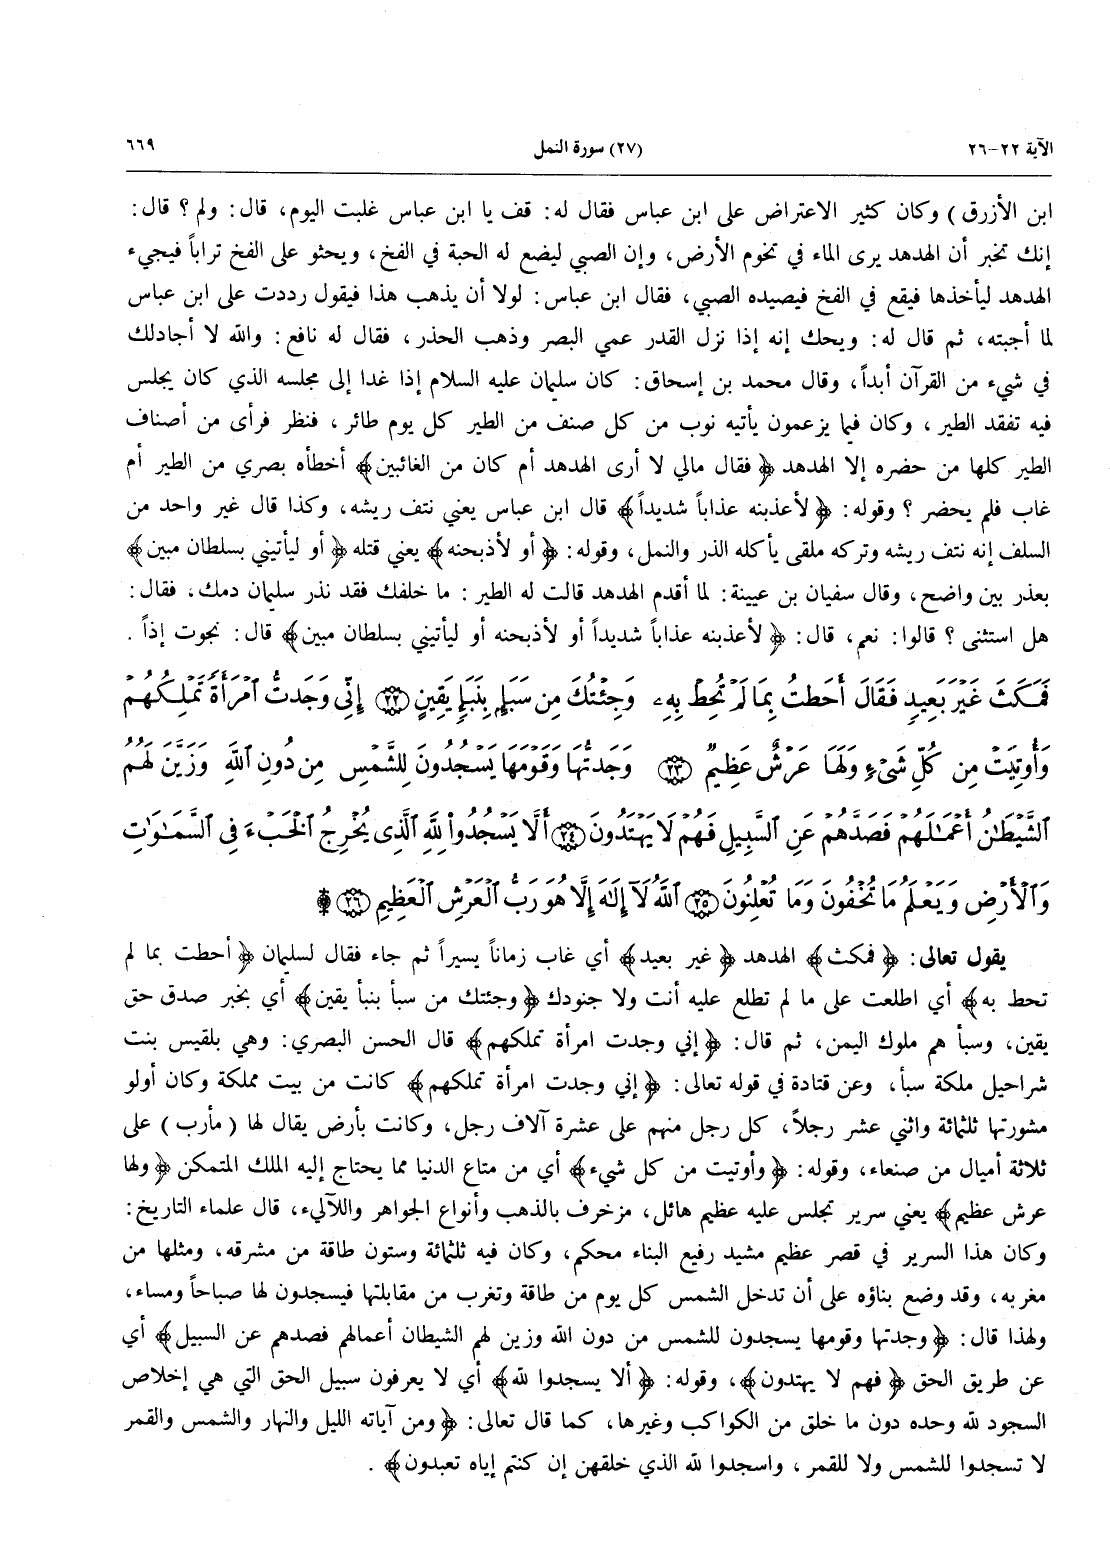 الآية ٢٢-٢٦ (٢٧) سورة النمل ٦٦٩
ابن الأزرق ) وكان كثير الاعتراض على ابن عباس فقال له: قف يا ابن عباس غلبت اليوم، قال: ولم ؟ قال:
إنك تخبر أن الهدهد يرى الماء في تخوم الأرض، وإن الصبي ليضع له الحبة في الفخ، ويحثو على الفخ تراباً فيجيء
الهدهد ليأخذها فيقع في الفخ فيصيده الصبي، فقال ابن عباس: لولا أن يذهب هذا فيقول رددت على ابن عباس
لما أجبته، ثم قال له: ويحك إنه إذا نزل القدر عمي البصر وذهب الحذر، فقال له نافع: والله لا أجادلك
في شيء من القرآن أبداً، وقال محمد بن إسحاق: كان سليمان عليه السلام إذا غدا إلى مجلسه الذي كان يجلس
فيه تفقد الطير، وكان فيما يزعمون يأتيه نوب من كل صنف من الطير كل يوم طائر، فنظر فرأى من أصناف
الطير كلها من حضره إلا الهدهد ﴿فقال مالي لا أرى الهدهد أم كان من الغائبين﴾ أخطأه بصري من الطير أم
غاب فلم يحضر ؟ وقوله: ﴿لأعذبنه عذاباً شديداً﴾ قال ابن عباس يعني نتف ريشه، وكذا قال غير واحد من
السلف إنه نتف ريشه وتركه ملقى يأكله الذر والنمل، وقوله: ﴿أو لأذبحنه﴾ يعني قتله ﴿أو ليأتيني بسلطان مبين﴾
بعذر بين واضح، وقال سفيان بن عيينة: لما أقدم الهدهد قالت له الطير: ما خلفك فقد نذر سليمان دمك، فقال:
هل استثنى ؟ قالوا: نعم، قال: ﴿لأعذبنه عذاباً شديداً أو لأذبحنه أو ليأتيني بسلطان مبين﴾ قال: نجوت إذاً .
فَمَكَثَ غَيْرَ بَعِيدٍ فَقَالَ أَحَطتُ بِمَا لَمْ تُحِطْ بِهِۦ وَجِئْتُكَ مِن سَبَإٍۭ بِنَبَإٍ يَقِينٍ ﴿٢٢﴾ إِنِّى وَجَدتُّ ٱمْرَأَةً تَمْلِكُهُمْ
وَأُوتِيَتْ مِن كُلِّ شَىْءٍ وَلَهَا عَرْشٌ عَظِيمٌ ﴿٢٣﴾ وَجَدتُّهَا وَقَوْمَهَا يَسْجُدُونَ لِلشَّمْسِ مِن دُونِ ٱللَّهِ وَزَيَّنَ لَهُمُ
ٱلشَّيْطَـٰنُ أَعْمَـٰلَهُمْ فَصَدَّهُمْ عَنِ ٱلسَّبِيلِ فَهُمْ لَا يَهْتَدُونَ ﴿٢٤﴾ أَلَّا يَسْجُدُوا۟ لِلَّهِ ٱلَّذِى يُخْرِجُ ٱلْخَبْءَ فِى ٱلسَّمَـٰوَٰتِ
وَٱلْأَرْضِ وَيَعْلَمُ مَا تُخْفُونَ وَمَا تُعْلِنُونَ ﴿٢٥﴾ ٱللَّهُ لَآ إِلَـٰهَ إِلَّا هُوَ رَبُّ ٱلْعَرْشِ ٱلْعَظِيمِ ﴿٢٦﴾
يقول تعالى: ﴿فمكث﴾ الهدهد ﴿غير بعيد﴾ أي غاب زماناً يسيراً ثم جاء فقال لسليمان ﴿أحطت بما لم
تحط به﴾ أي اطلعت على ما لم تطلع عليه أنت ولا جنودك ﴿وجئتك من سبأ بنبأ يقين﴾ أي بخبر صدق حق
يقين، وسبأ هم ملوك اليمن، ثم قال: ﴿إني وجدت امرأة تملكهم﴾ قال الحسن البصري: وهي بلقيس بنت
شراحيل ملكة سبأ، وعن قتادة في قوله تعالى: ﴿إني وجدت امرأة تملكهم﴾ كانت من بيت مملكة وكان أولو
مشورتها ثلثمائة واثني عشر رجلاً، كل رجل منهم على عشرة آلاف رجل، وكانت بأرض يقال لها ( مأرب ) على
ثلاثة أميال من صنعاء، وقوله: ﴿وأوتيت من كل شيء﴾ أي من متاع الدنيا مما يحتاج إليه الملك المتمكن ﴿ولها
عرش عظيم﴾ يعني سرير تجلس عليه عظيم هائل، مزخرف بالذهب وأنواع الجواهر واللآليء، قال علماء التاريخ:
وكان هذا السرير في قصر عظيم مشيد رفيع البناء محكم، وكان فيه ثلثمائة وستون طاقة من مشرقه، ومثلها من
مغربه، وقد وضع بناؤه على أن تدخل الشمس كل يوم من طاقة وتغرب من مقابلتها فيسجدون لها صباحاً ومساء،
ولهذا قال: ﴿وجدتها وقومها يسجدون للشمس من دون الله وزين لهم الشيطان أعمالهم فصدهم عن السبيل﴾ أي
عن طريق الحق ﴿فهم لا يهتدون﴾، وقوله: ﴿ألا يسجدوا لله﴾ أي لا يعرفون سبيل الحق التي هي إخلاص
السجود لله وحده دون ما خلق من الكواكب وغيرها، كما قال تعالى: ﴿ومن آياته الليل والنهار والشمس والقمر
لا تسجدوا للشمس ولا للقمر، واسجدوا لله الذي خلقهن إن كنتم إياه تعبدون﴾ .